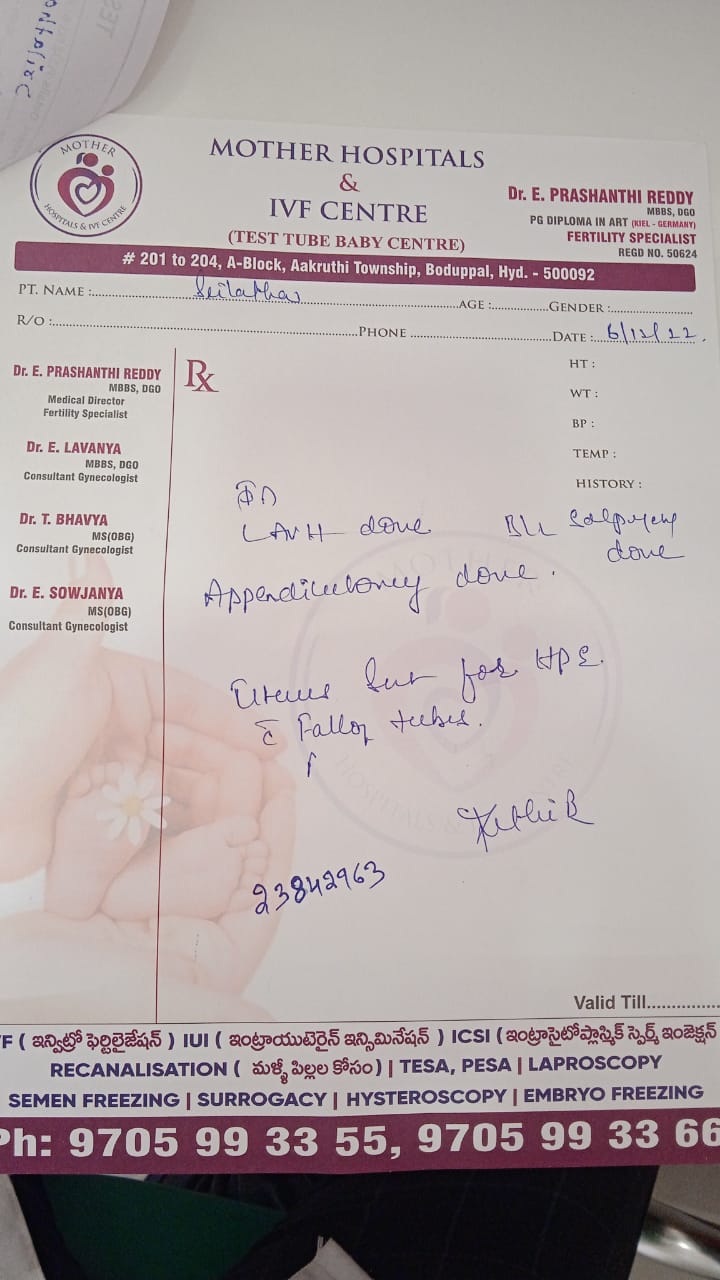 MOTHER
HOSPITALS & IVF CENTRE
MOTHER HOSPITALS
&
IVF CENTRE
(TEST TUBE BABY CENTRE)
Dr. E. PRASHANTHI REDDY
MBBS, DGO
PG DIPLOMA IN ART (KIEL - GERMANY)
FERTILITY SPECIALIST
REGD NO. 50624
# 201 to 204, A-Block, Aakruthi Township, Boduppal, Hyd. - 500092
PT. NAME : AGE : GENDER :
R/O : PHONE DATE : 6/12/22
HT :
WT :
BP :
TEMP :
HISTORY :
Dr. E. PRASHANTHI REDDY
MBBS, DGO
Medical Director
Fertility Specialist
Dr. E. LAVANYA
MBBS, DGO
Consultant Gynecologist
Dr. T. BHAVYA
MS(OBG)
Consultant Gynecologist
Dr. E. SOWJANYA
MS(OBG)
Consultant Gynecologist
Rx
LAVH done B/L done
done.
Uterus for HPE.
c̄ Fallop tubes.
23842963
Valid Till
F ( ఇన్విట్రో ఫెర్టిలైజేషన్ ) IUI ( ఇంట్రాయుటెరైన్ ఇన్సిమినేషన్ ) ICSI ( ఇంట్రాసైటోప్లాస్మిక్ స్పెర్మ్ ఇంజెక్షన్
RECANALISATION ( మళ్ళీ పిల్లల కోసం ) | TESA, PESA | LAPROSCOPY
SEMEN FREEZING | SURROGACY | HYSTEROSCOPY | EMBRYO FREEZING
Ph: 9705 99 33 55, 9705 99 33 66